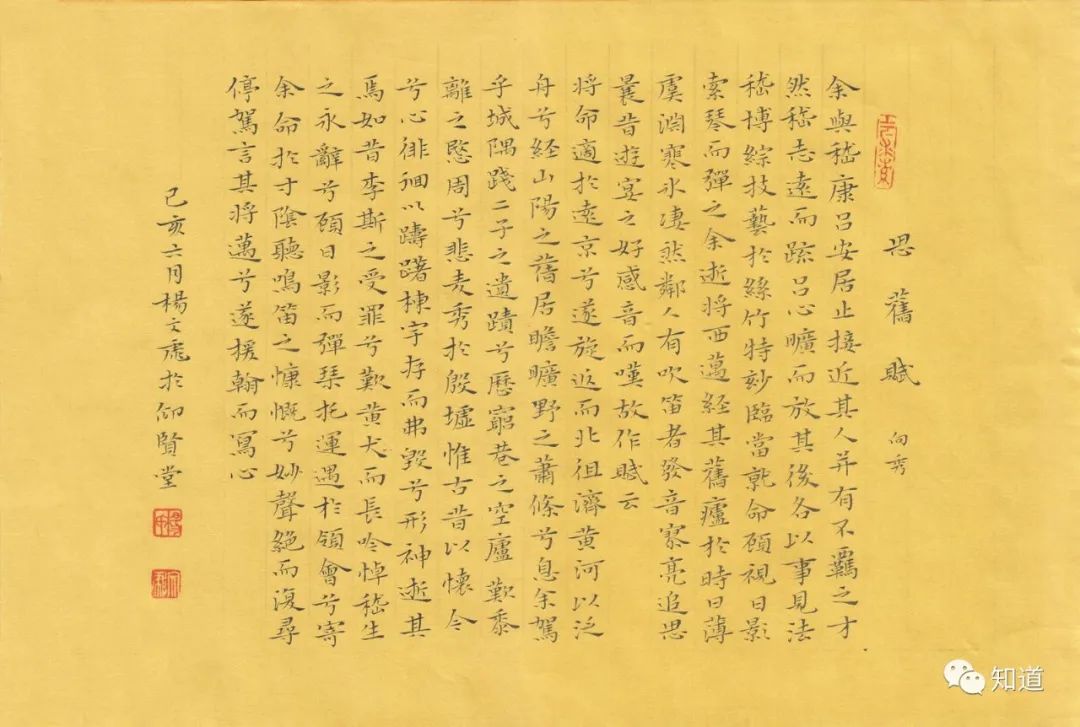 思舊賦 向秀
余與嵇康呂安居止接近其人并有不羈之才
然嵇志遠而疏呂心曠而放其後各以事見法
嵇博綜技藝於絲竹特妙臨當就命顧視日影
索琴而彈之余逝將西邁経其舊廬於時日薄
虞淵寒冰淒然鄰人有吹笛者發音寥亮追思
曩昔遊宴之好感音而嘆故作賦云
將命適於遠京兮遂旋返而北徂濟黄河以泛
舟兮経山陽之舊居瞻曠野之蕭條兮息余駕
乎城隅踐二子之遺蹟兮歷窮巷之空廬歎黍
離之愍周兮悲麦秀於殷墟惟古昔以懷今
兮心徘徊以躊躇棟宇存而弗毀兮形神逝其
焉如昔李斯之受罪兮歎黄犬而長吟悼嵇生
之永辭兮顧日影而彈琴托運遇於領會兮寄
余命於寸陰聽鳴笛之慷慨兮妙聲絕而復尋
停駕言其將邁兮遂援翰而寫心
己亥六月楊文虎於仰賢堂
知道